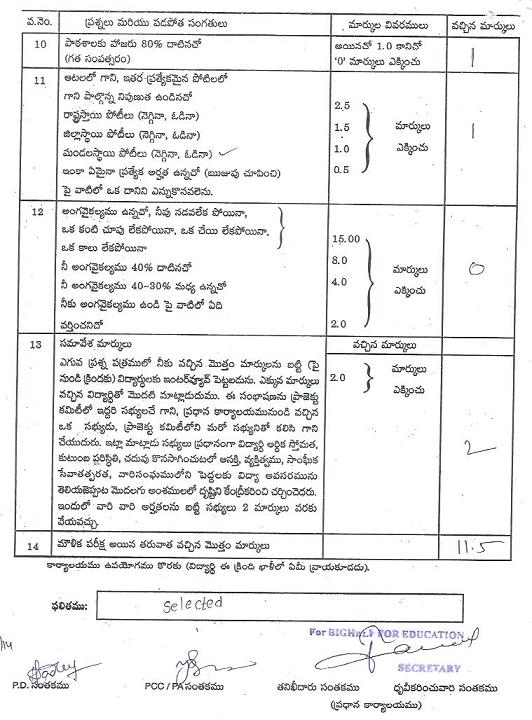 వ.నెం. ప్రశ్నలు మరియు వడపోత సంగతులు మార్కుల వివరములు వచ్చిన మార్కులు
10 పాఠశాలకు హాజరు 80% దాటినచో అయినచో 1.0 కానిచో 1
(గత సంవత్సరం) '0' మార్కులు ఎక్కించు
11 ఆటలలో గాని, ఇతర ప్రత్యేకమైన పోటిలలో
గాని పాల్గొన్న నిపుణుత ఉండినచో 2.5
రాష్ట్రస్థాయి పోటీలు (నెగ్గినా, ఓడినా) 1.5 మార్కులు 1
జిల్లాస్థాయి పోటీలు (నెగ్గినా, ఓడినా) 1.0 ఎక్కించు
మండలస్థాయి పోటీలు (నెగ్గినా, ఓడినా) ✓
ఇంకా ఏమైనా ప్రత్యేక అర్హత ఉన్నచో (ఋజువు చూపించి) 0.5
పై వాటిలో ఒక దానిని ఎన్నుకొనవలెను.
12 అంగవైకల్యము ఉన్నచో, నీవు నడవలేక పోయినా,
ఒక కంటి చూపు లేకపోయినా, ఒక చేయి లేకపోయినా,
ఒక కాలు లేకపోయినా 15.00
నీ అంగవైకల్యము 40% దాటినచో 8.0 మార్కులు 0
నీ అంగవైకల్యము 40-30% మధ్య ఉన్నచో 4.0 ఎక్కించు
నీకు అంగవైకల్యము ఉండి పై వాటిలో ఏది
వర్తించనిచో 2.0
13 సమావేశ మార్కులు వచ్చిన మార్కులు
ఎగువ ప్రశ్న పత్రములో నీకు వచ్చిన మొత్తం మార్కులను బట్టి (పై 2.0 మార్కులు
నుండి క్రిందకు) విద్యార్థులకు ఇంటర్వ్యూవ్ పెట్టబడును. ఎక్కువ మార్కులు ఎక్కించు
వచ్చిన విద్యార్థితో మొదటి మాట్లాడుదుము. ఈ సంభాషణను ప్రాజెక్టు
కమిటీలో ఇద్దరి సభ్యులచే గాని, ప్రధాన కార్యాలయమునుండి వచ్చిన
ఒక సభ్యుడు, ప్రాజెక్టు కమిటీలోని మరో సభ్యునితో కలిసి గాని 2
చేయుదురు. ఇట్లా మాట్లాడు సభ్యులు ప్రధానంగా విద్యార్థి ఆర్థిక స్తోమత,
కుటుంబ పరిస్థితి, చదువు కొనసాగించుటలో ఆసక్తి, వ్యక్తిత్వము, సాంఘీక
సేవాతత్పరత, వారిసంఘములోని పెద్దలకు విద్యా అవసరమును
తెలియజెప్పుట మొదలగు అంశములలో దృష్టిని కేంద్రీకరించి చర్చించెదరు.
ఇందులో వారి వారి అర్హతలను బట్టి సభ్యులు 2 మార్కులు వరకు
వేయవచ్చు.
14 మౌళిక పరీక్ష అయిన తరువాత వచ్చిన మొత్తం మార్కులు 11.5
కార్యాలయము ఉపయోగము కొరకు (విద్యార్థి ఈ క్రింది ఖాళీలో ఏమీ వ్రాయకూడదు).
ఫలితము: Selected
For BIGHELP FOR EDUCATION
SECRETARY
P.D. సంతకము PCC / PA సంతకము తనిఖీదారు సంతకము ధృవీకరించువారి సంతకము
(ప్రధాన కార్యాలయం)